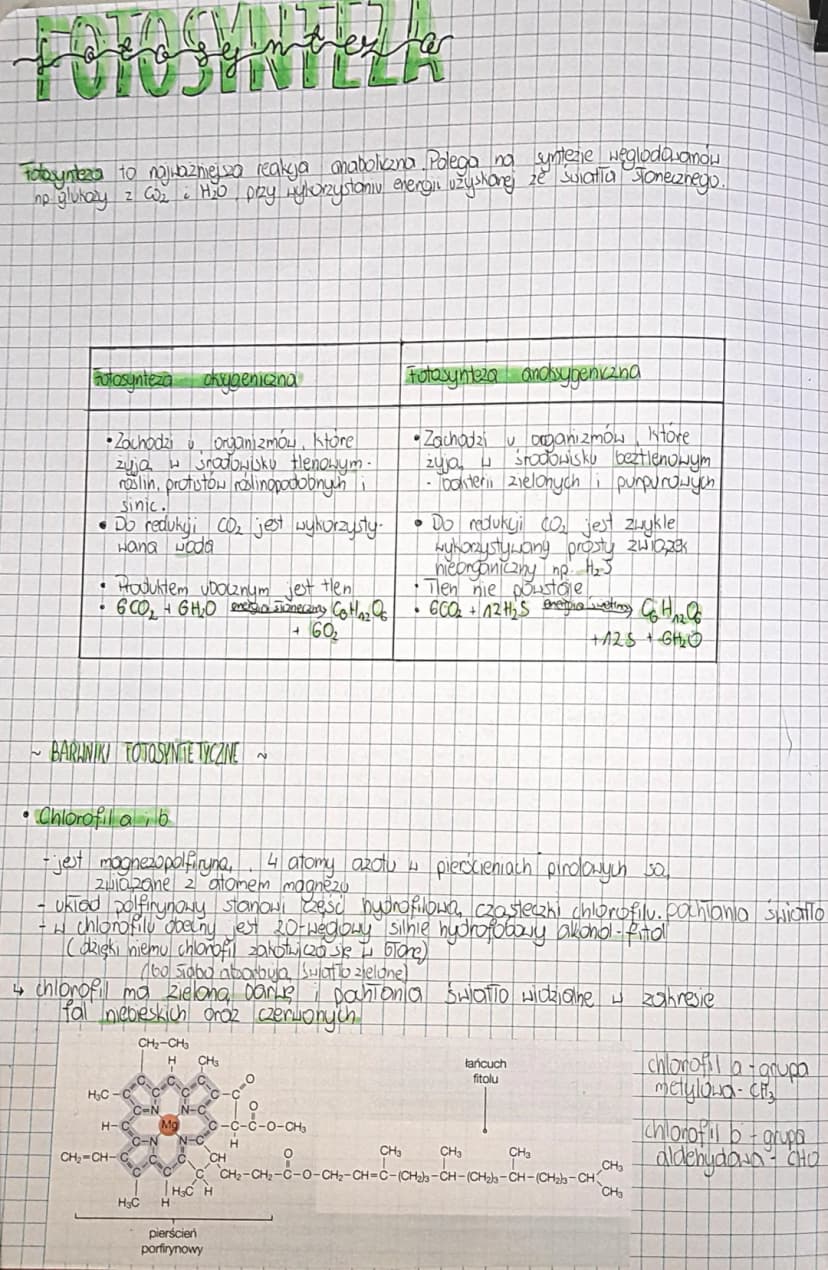 FOTOSYNTEZA
fotosynteza
Fotosynteza to najważniejsza reakcja anaboliczna. Polega na syntezie węglodowanów
np glukozy z CO₂ i H₂O, przy wykorzystaniu energii uzyskanej ze światła słonecznego.
Fotosynteza oksygeniczna
• Zachodzi u organizmów, które
żyją w środowisku tlenowym-
roślin, protistów roślinopodobnych i
sinic.
• Do redukcji CO₂ jest wykorzysty-
wana woda
• Produktem ubocznym jest tlen
• 6CO₂ + 6H₂O energia słoneczna C₆H₁₂O₆
+ 6O₂
Fotosynteza anoksygeniczna
• Zachodzi u organizmów, które
żyją w środowisku beztlenowym
- bakterii zielonych i purpurowych
• Do redukcji CO₂ jest zwykle
wykorzystywany prosty związek
nieorganiczny np. H₂S
• Tlen nie powstaje
• 6CO₂ + 12H₂S energia świetlna C₆H₁₂O₆
+12S + 6H₂O
~ BARWNIKI FOTOSYNTETYCZNE ~
• Chlorofil a i b
- jest magnezopolfiryną, 4 atomy azotu w pierścieniach pirolowych są
związane z atomem magnezu
- układ polfirynowy stanowi część hydrofilową cząsteczki chlorofilu. pochłania światło
- w chlorofilu obecny jest 20-węglowy silnie hydrofobowy alkohol-fitol
(dzięki niemu chlorofil zakotwicza się w błonę)
(bo słabo absorbują światło zielone)
↳ chlorofil ma zieloną barwę i pochłania światło widzialne w zakresie
fal niebieskich oraz czerwonych
CH₂–CH₃
H CH₃
H₃C–C
C=N N–C
H–C Mg
C–N N–C
CH₂=CH–C
H₃C H
H₃C H
C–C O
C–C–C–O–CH₃
O
H
CH
CH₂–CH₂–C–O–CH₂–CH=C–(CH₂)₃–CH–(CH₂)₃–CH–(CH₂)₃–CH
O CH₃ CH₃ CH₃ CH₃
CH₃
łańcuch
fitolu
pierścień
porfirynowy
chlorofil a - grupa
metylowa- CH₃
chlorofil b - grupa
aldehydowa- CHO